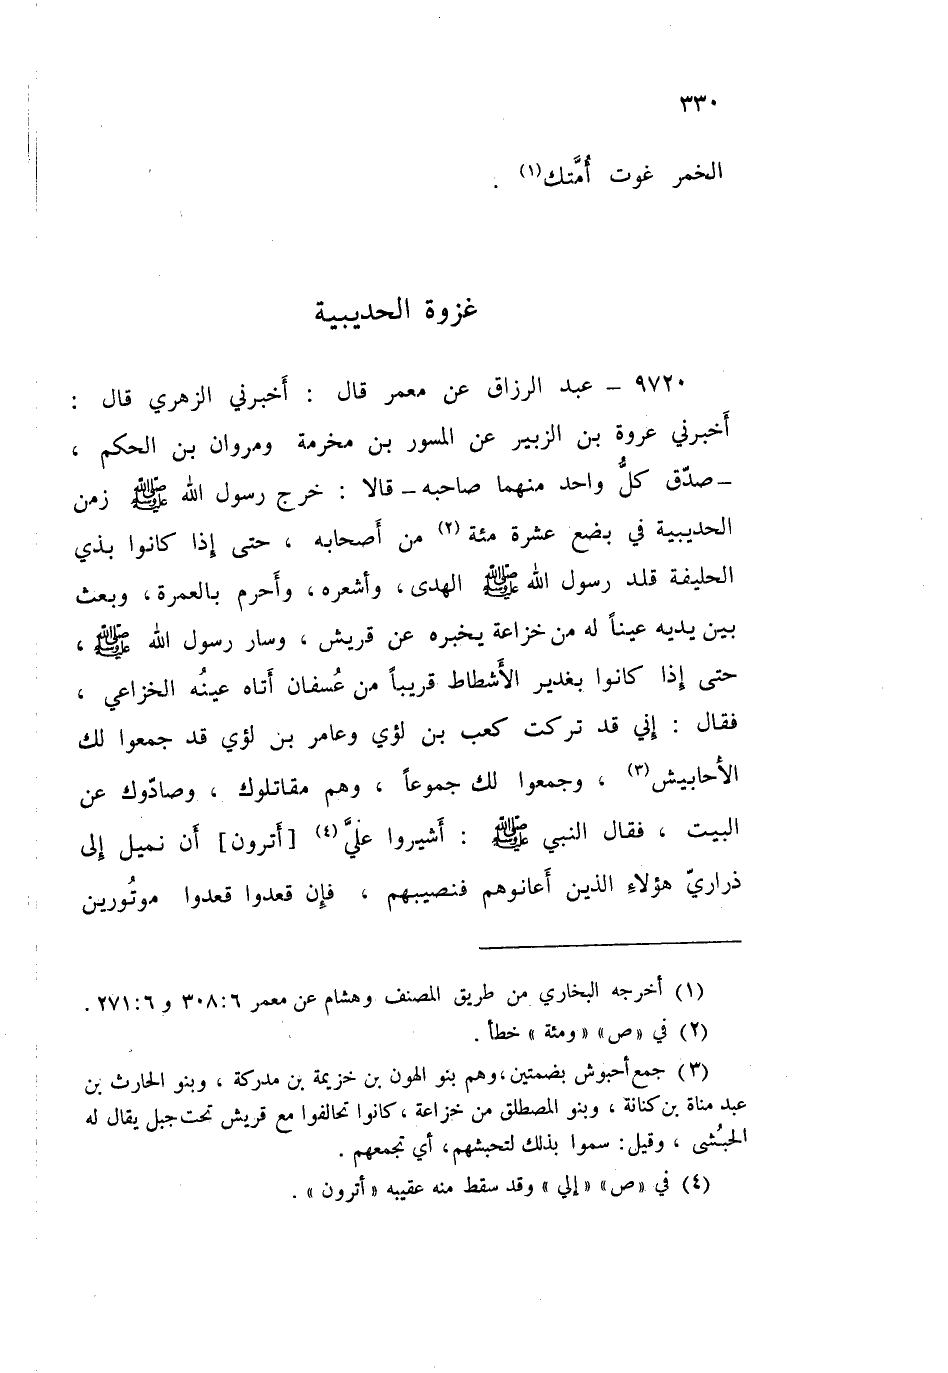 ٣٣٠
الخمر غوت أُمَّتك(١) .
غزوة الحديبية
٩٧٢٠ – عبد الرزاق عن معمر قال : أَخبرني الزهري قال :
أَخبرني عروة بن الزبير عن المسور بن مخرمة ومروان بن الحكم ،
– صدّق كلُّ واحد منهما صاحبه – قالا : خرج رسول الله ﷺ زمن
الحديبية في بضع عشرة مئة (٢) من أَصحابه ، حتى إِذا كانوا بذي
الحليفة قلد رسول الله ﷺ الهدى ، وأشعره ، وأَحرم بالعمرة ، وبعث
بين يديه عيناً له من خزاعة يخبره عن قريش ، وسار رسول الله ﷺ ،
حتى إِذا كانوا بغدير الأَشطاط قريباً من عُسفان أتاه عينُه الخزاعي ،
فقال : إِني قد تركت كعب بن لؤي وعامر بن لؤي قد جمعوا لك
الأَحابيش(٣) ، وجمعوا لك جموعاً ، وهم مقاتلوك ، وصادّوك عن
البيت ، فقال النبي ﷺ : أَشيروا عليَّ (٤) [أَترون] أَن نميل إِلى
ذراريّ هؤلاءِ الذين أَعانوهم فنصيبهم ، فإِن قعدوا قعدوا موتُورين
(١) أخرجه البخاري من طريق المصنف وهشام عن معمر ٦ : ٣٠٨ و ٦ : ٢٧١ .
(٢) في «ص» «ومئة» خطأ .
(٣) جمع أحبوش بضمتين، وهم بنو الهون بن خزيمة بن مدركة ، وبنو الحارث بن
عبد مناة بن كنانة ، وبنو المصطلق من خزاعة ، كانوا تحالفوا مع قريش تحت جبل يقال له
الحبُشى ، وقيل : سموا بذلك لتحبشهم، أي تجمعهم .
(٤) في «ص» «إلي» وقد سقط منه عقيبه «أترون» .